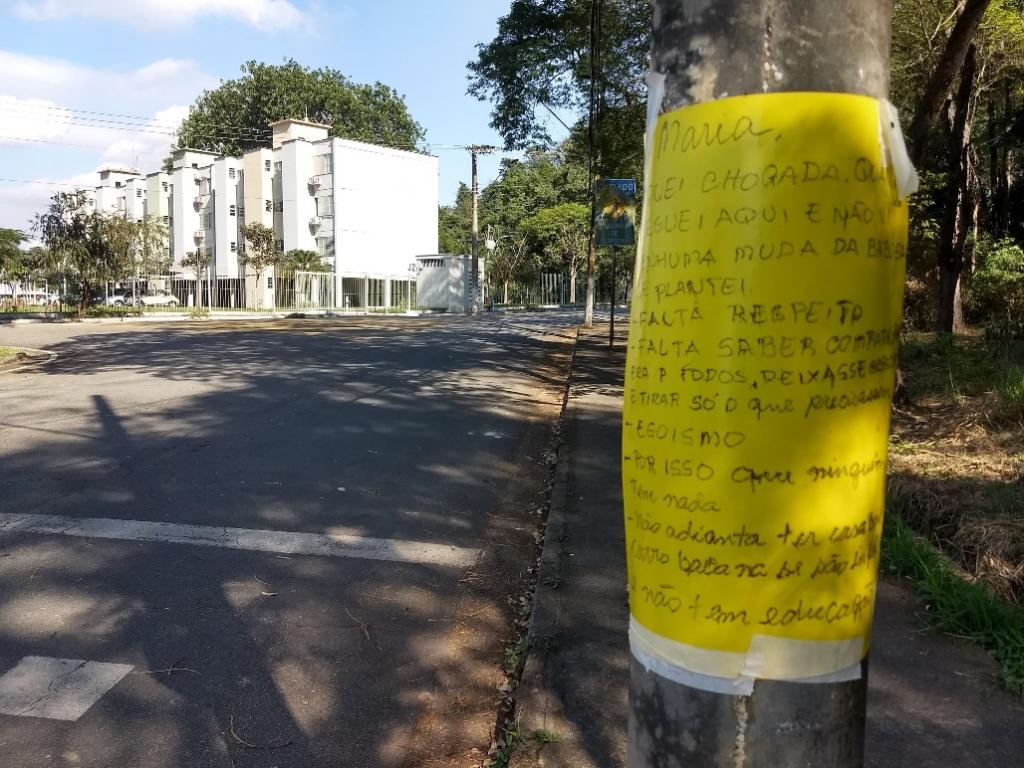 Maria,
CHOCADA. QU
EGUEI AQUI E NÃO V
NHUMA MUDA DA BABOSA
E PLANTEI.
- FALTA RESPEITO
- FALTA SABER COMPARTI
ERA P TODOS, DEIXASSE
E TIRAR SÓ O que precisassem
- EGOISMO
- POR ISSO que ninguém
Tem nada
- não adianta ter casa
carro bacana se não
não tem educação